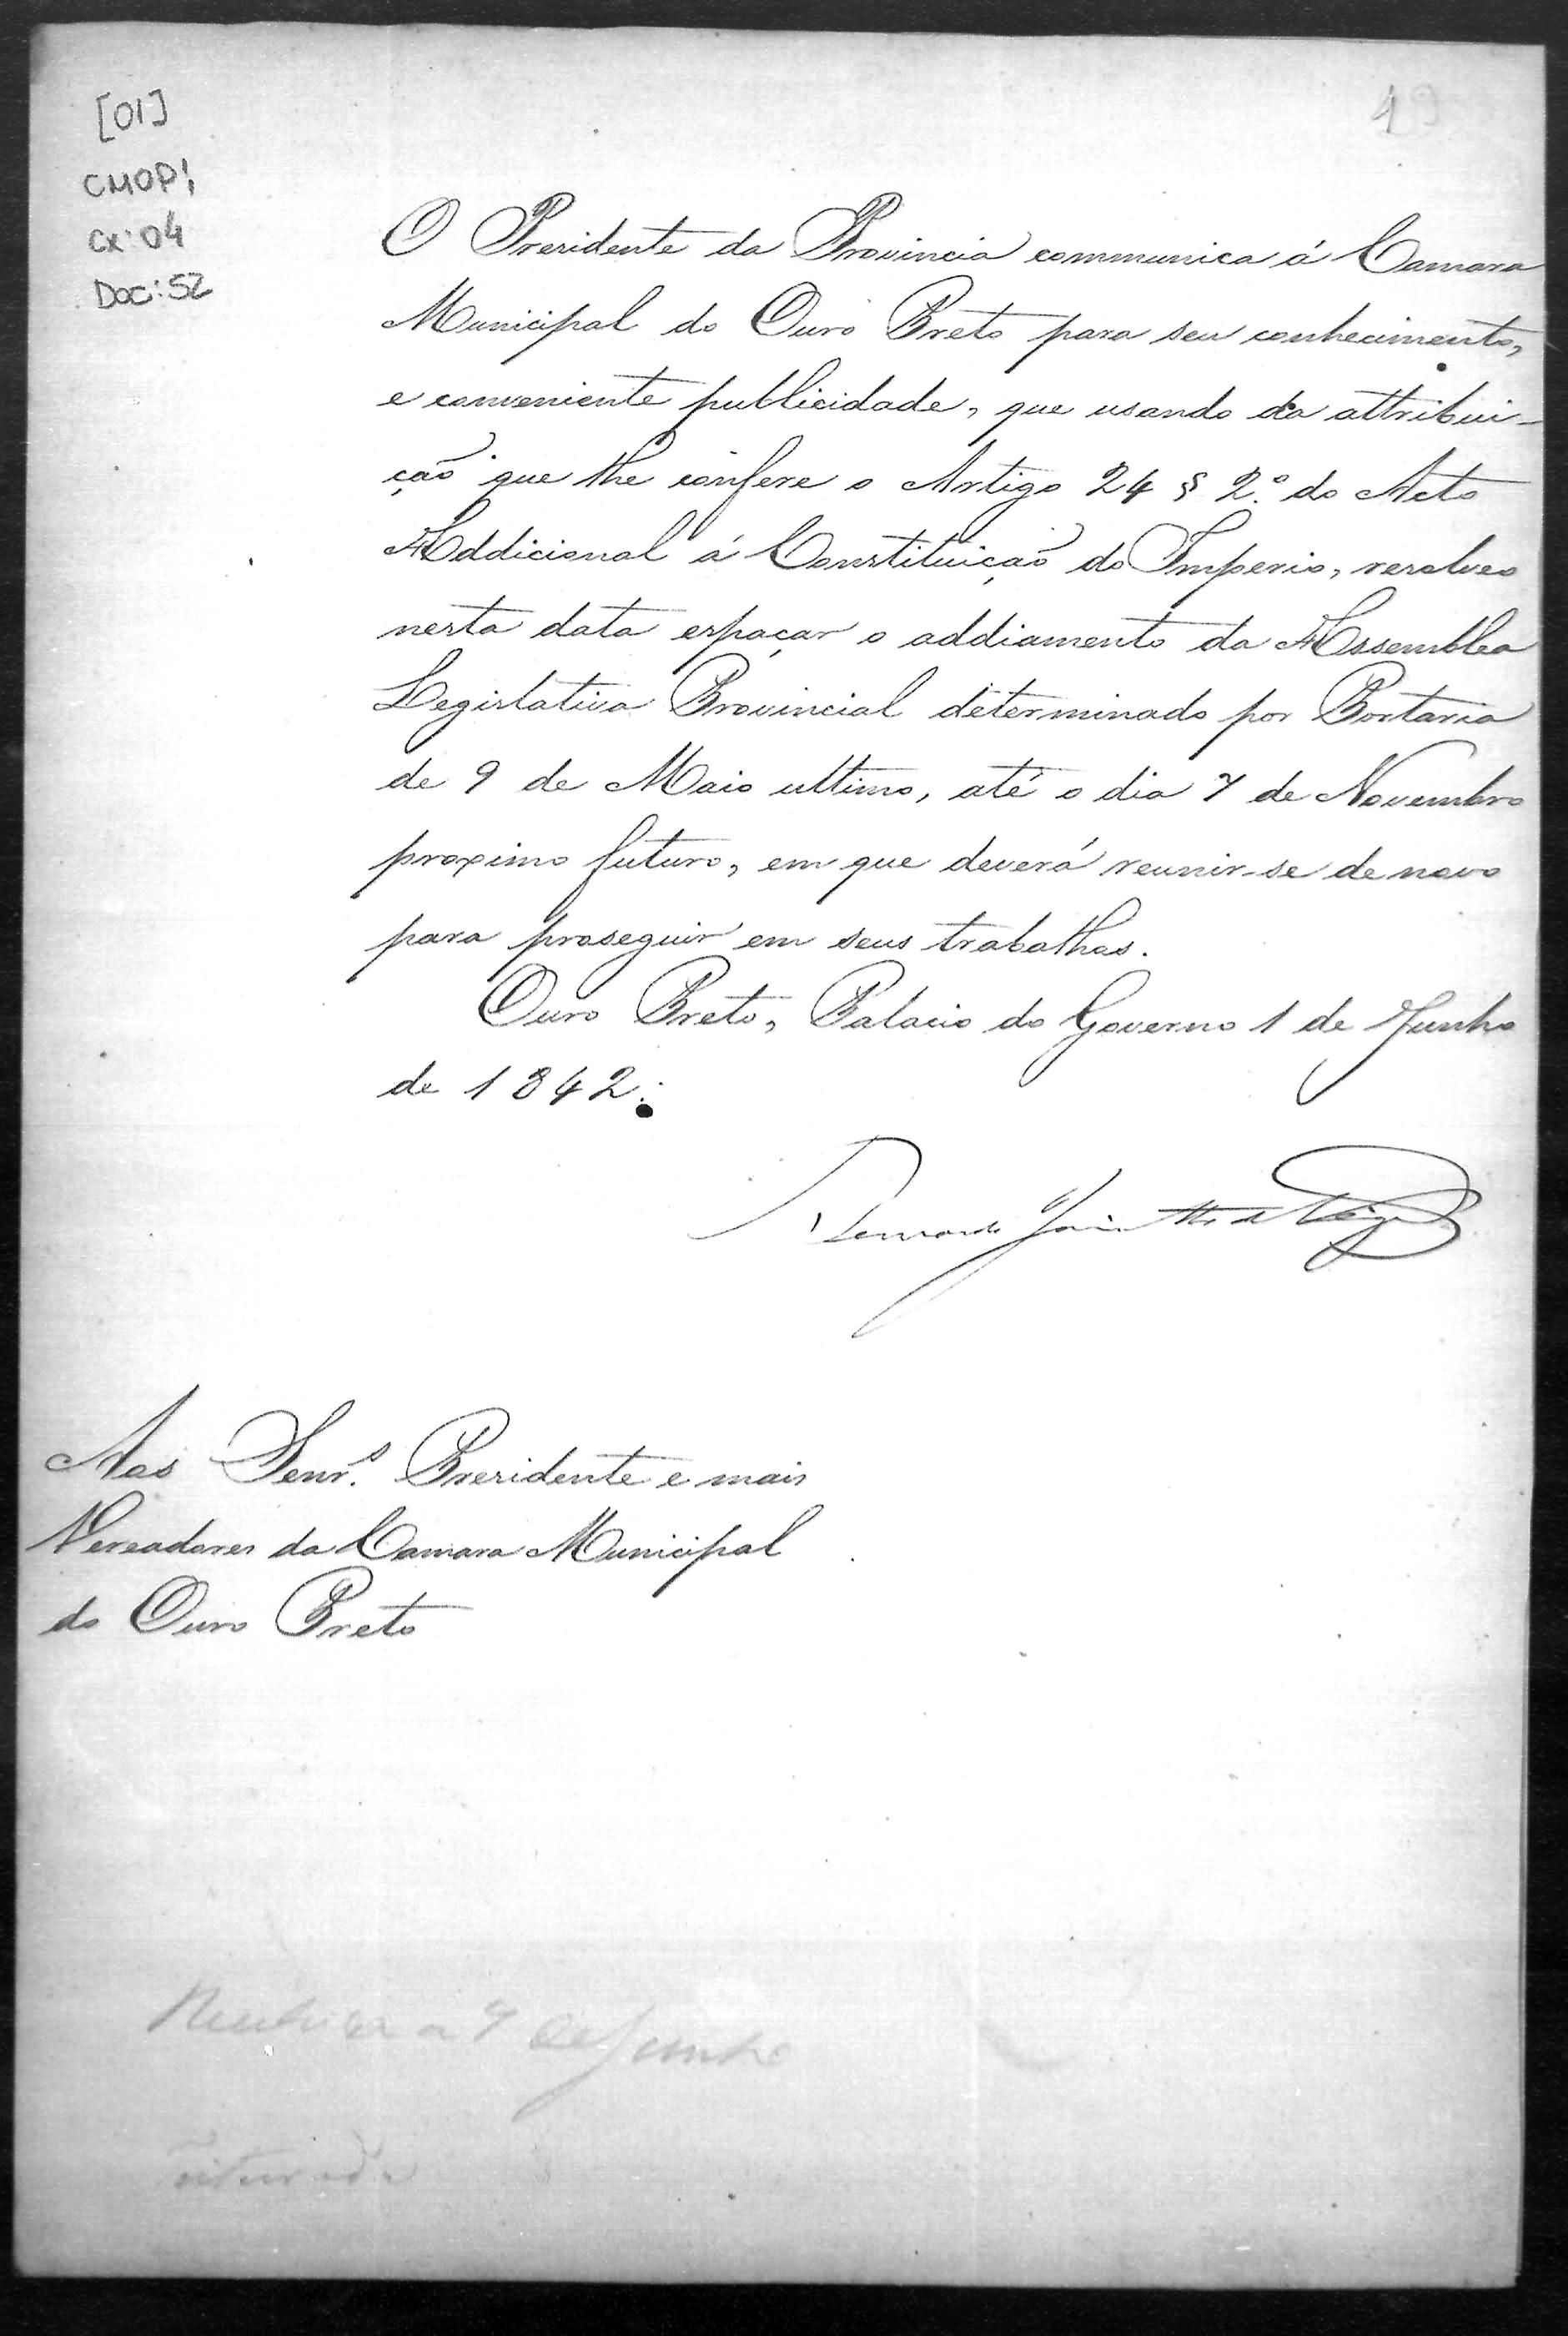 [01]
CMOP1
CX: 04
Doc: 52
19
O Presidente da Provincia communica á Camara
Municipal do Ouro Preto para seu conhecimento,
e conveniente publicidade, que usando da attribui-
ção que lhe confere o Artigo 24 § 2.º do Acto
Addicional á Constituição do Imperio, resolveo
nesta data espaçar o addiamento da Assemblea
Legislativa Provincial determinado por Portaria
de 9 de Maio ultimo, até o dia 7 de Novembro
proximo futuro, em que deverá reunir-se de novo
para proseguir em seus trabalhos.
Ouro Preto, Palacio do Governo 1 de Junho
de 1842.
Bernardo Jacintho da Veiga
Aos Senr.s Presidente e mais
Vereadores da Camara Municipal
do Ouro Preto
a 9 de Junho